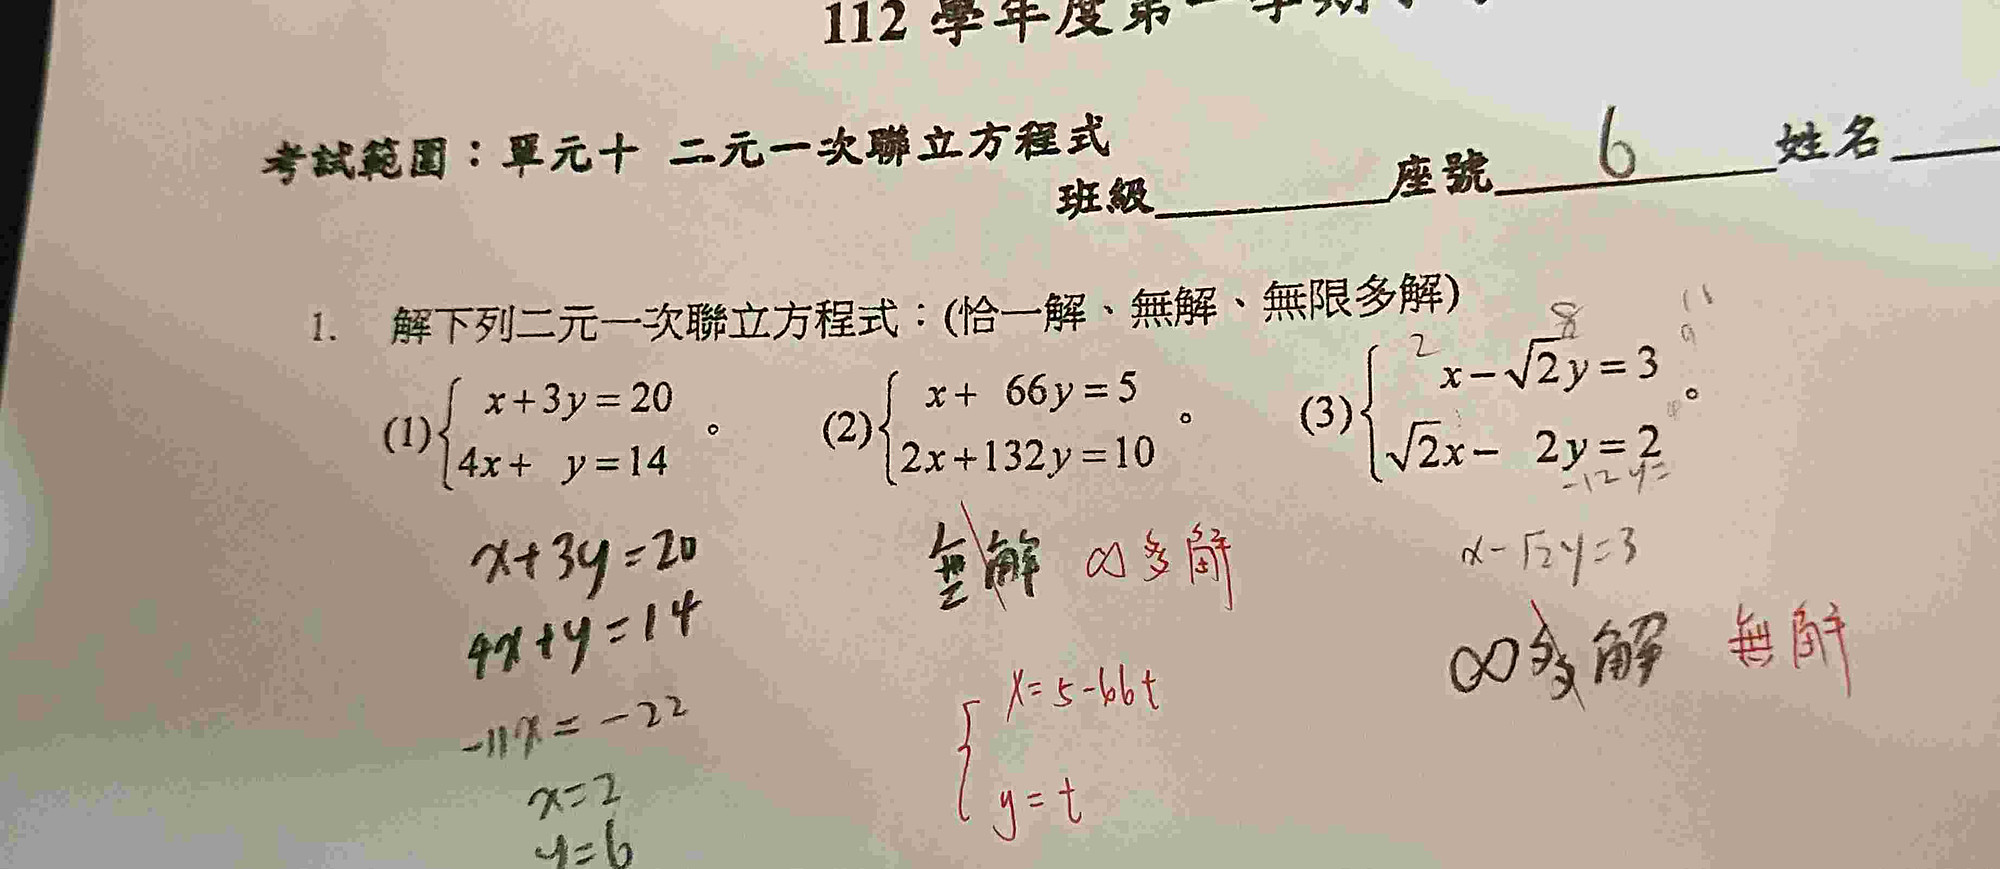 112 學年度第一學期
考試範圍：單元十 二元一次聯立方程式
班級 座號 6 姓名
1. 解下列二元一次聯立方程式：(恰一解、無解、無限多解)
(1) { x+3y=20
4x+ y=14 。
(2) { x+ 66y=5
2x+132y=10 。
(3) { x-√2y=3
√2x- 2y=2 。
2
8
11
9
-12 y=
x+3y=20
4x+y=14
-11x=-22
x=2
y=6
無解 ∞多解
{ x=5-66t
y=t
x-√2y=3
∞多解 無解